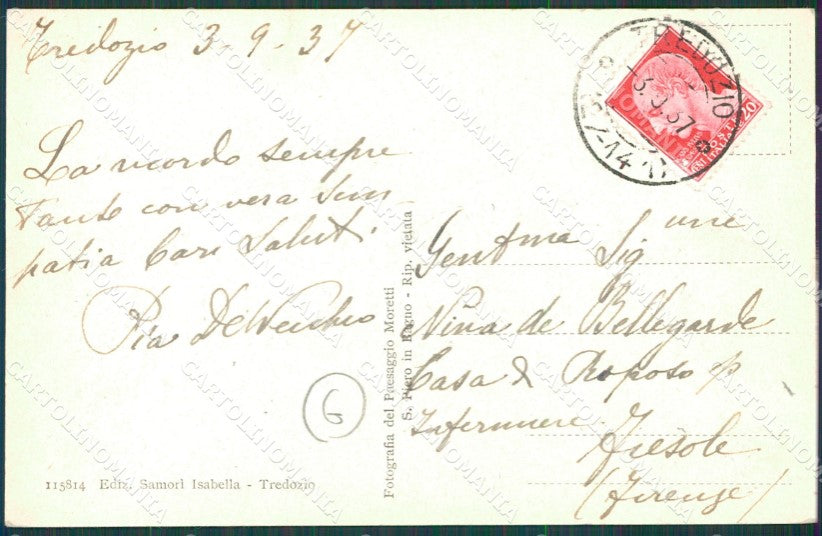 Tredozio 3-9-37
La ricordo sempre
tanto con vera sim-
patia Cari Saluti.
Pia Del Vecchio
6
115814 Ediz. Samorì Isabella - Tredozio
Fotografia del Paesaggio Moretti
S. Piero in Bagno - Rip. vietata
TREDOZIO
3.9.37
20
Gent.ma Sig.
Nina de Bellegarde
Casa di Roposo p
Infermiere Fiesole
(Firenze)
CARTOLINOMANIA